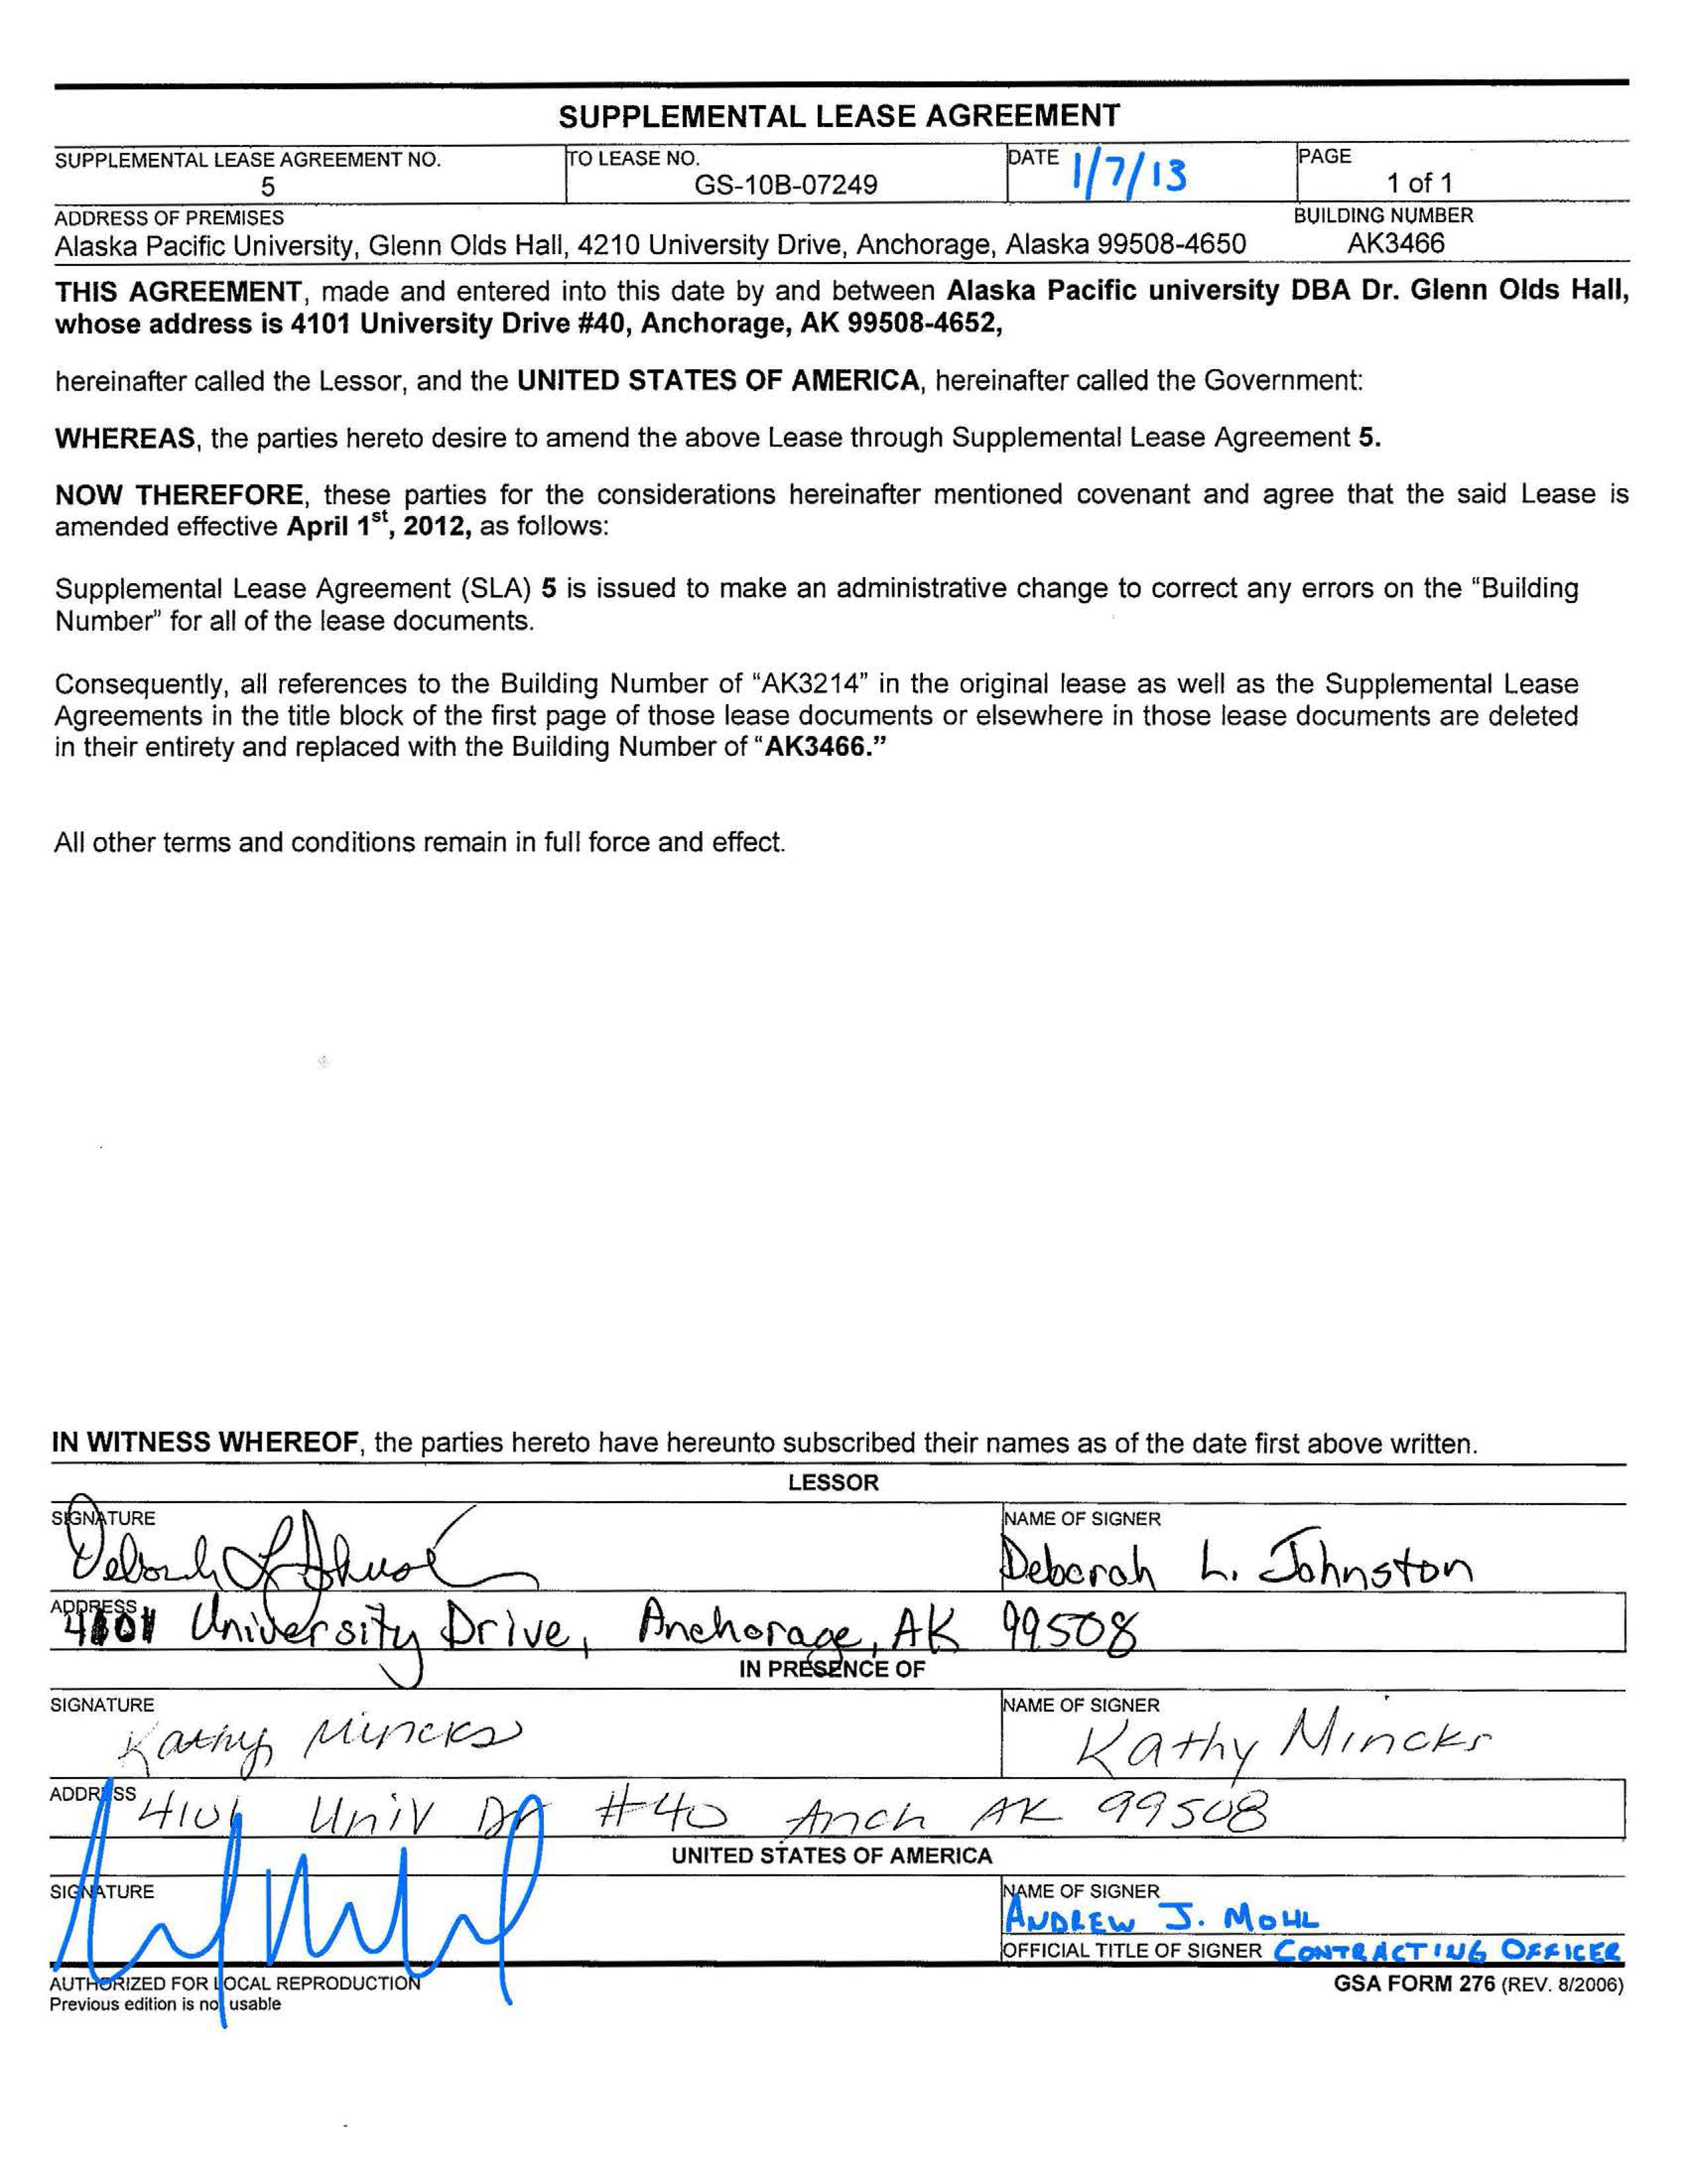 SUPPLEMENTAL LEASE AGREEMENT
SUPPLEMENTAL LEASE AGREEMENT NO. TO LEASE NO. DATE 1/7/13 PAGE
5 GS-10B-07249 1 of 1
ADDRESS OF PREMISES BUILDING NUMBER
Alaska Pacific University, Glenn Olds Hall, 4210 University Drive, Anchorage, Alaska 99508-4650 AK3466
THIS AGREEMENT, made and entered into this date by and between Alaska Pacific university DBA Dr. Glenn Olds Hall,
whose address is 4101 University Drive #40, Anchorage, AK 99508-4652,
hereinafter called the Lessor, and the UNITED STATES OF AMERICA, hereinafter called the Government:
WHEREAS, the parties hereto desire to amend the above Lease through Supplemental Lease Agreement 5.
NOW THEREFORE, these parties for the considerations hereinafter mentioned covenant and agree that the said Lease is
amended effective April 1st, 2012, as follows:
Supplemental Lease Agreement (SLA) 5 is issued to make an administrative change to correct any errors on the "Building
Number" for all of the lease documents.
Consequently, all references to the Building Number of "AK3214" in the original lease as well as the Supplemental Lease
Agreements in the title block of the first page of those lease documents or elsewhere in those lease documents are deleted
in their entirety and replaced with the Building Number of "AK3466."
All other terms and conditions remain in full force and effect.
IN WITNESS WHEREOF, the parties hereto have hereunto subscribed their names as of the date first above written.
LESSOR
SIGNATURE NAME OF SIGNER
Deborah L. Johnston
ADDRESS
4101 University Drive, Anchorage, AK 99508
IN PRESENCE OF
SIGNATURE NAME OF SIGNER
Kathy Mincks Kathy Mincks
ADDRESS
4101 Univ Dr #40 Anch AK 99508
UNITED STATES OF AMERICA
SIGNATURE NAME OF SIGNER
ANDREW J. MOHL
OFFICIAL TITLE OF SIGNER CONTRACTING OFFICER
AUTHORIZED FOR LOCAL REPRODUCTION GSA FORM 276 (REV. 8/2006)
Previous edition is not usable